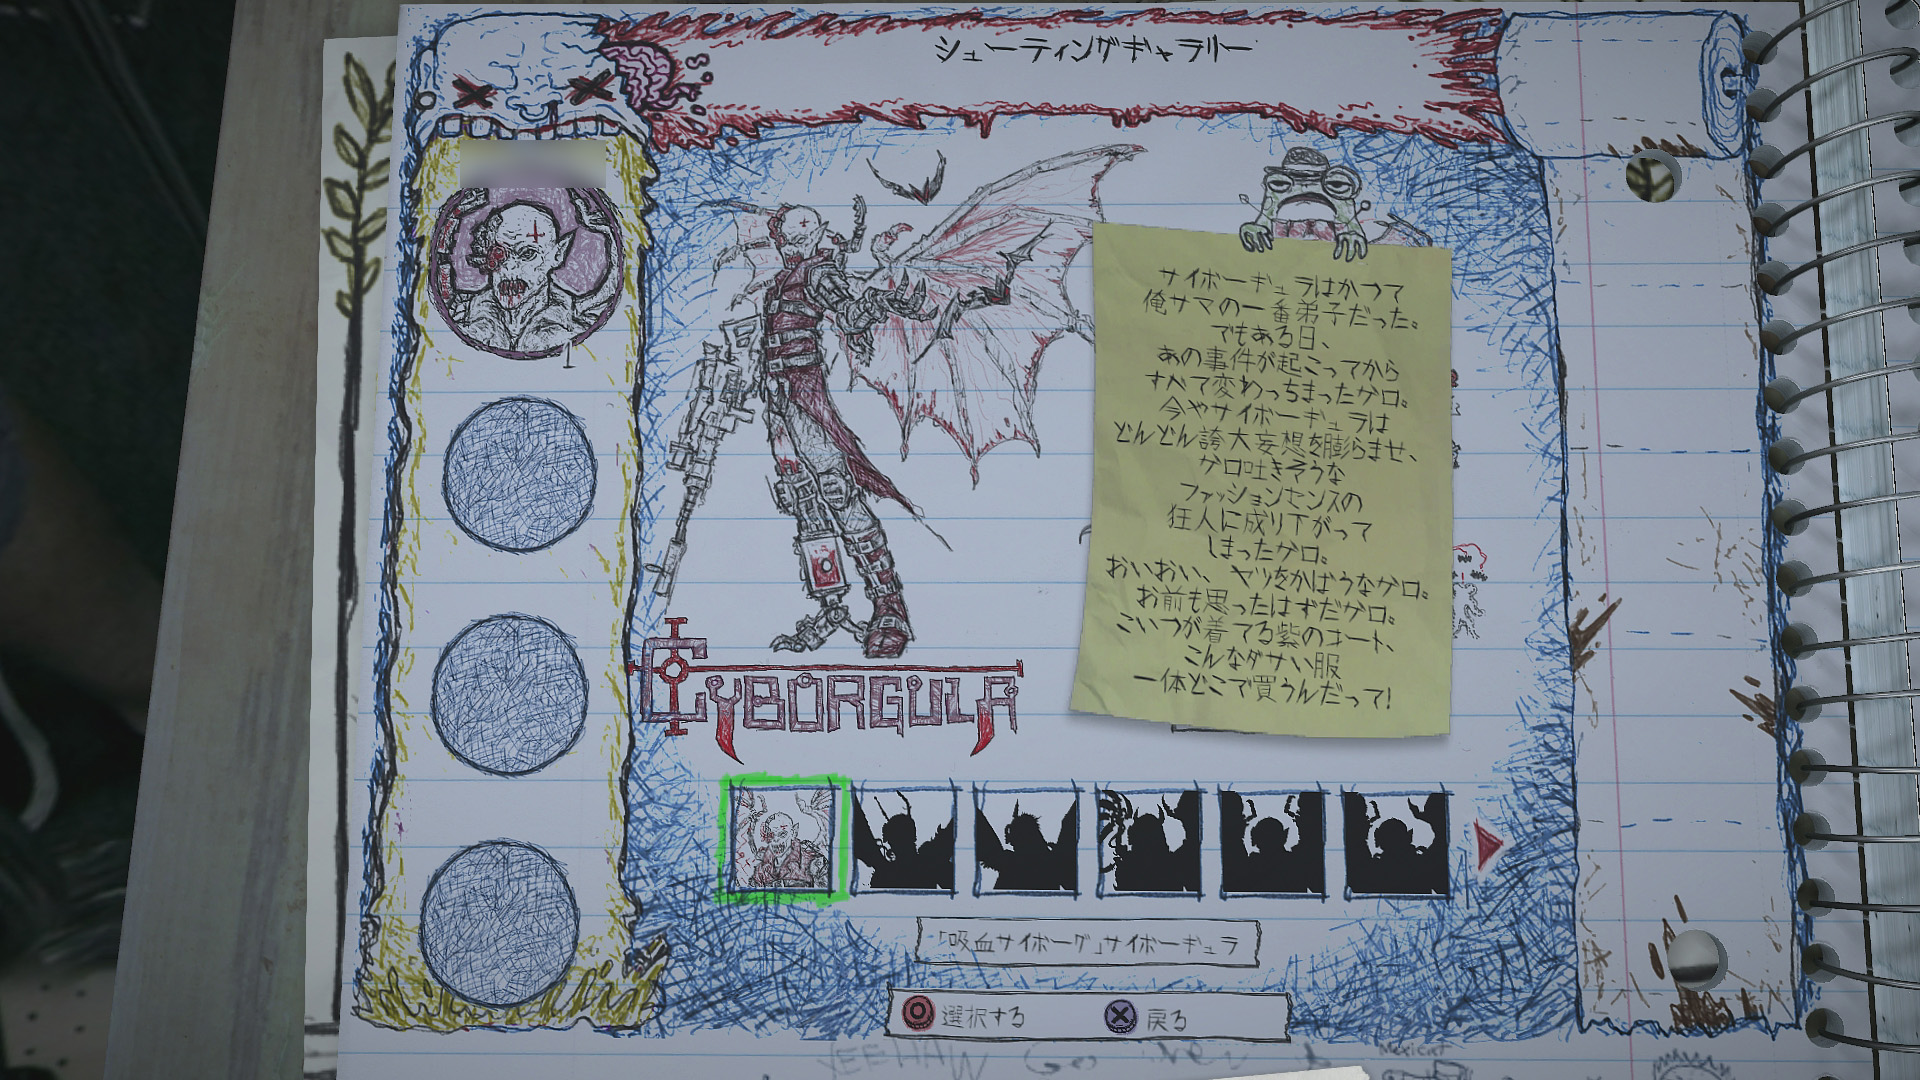 シューティングギャラリー
サイボーギュラはかつて
俺サマの一番弟子だった。
でもある日、
あの事件が起こってから
すべて変わっちまったゲロ。
今やサイボーギュラは
どんどん誇大妄想を膨らませ、
ゲロ吐きそうな
ファッションセンスの
狂人に成り下がって
しまったゲロ。
おいおい、ヤツをかばうなゲロ。
お前も思ったはずだゲロ。
こいつが着てる紫のコート、
こんなダサい服
一体どこで買うんだって!
CYBORGULA
「吸血サイボーグ」サイボーギュラ
選択する
戻る
YEEHAW
Mexican